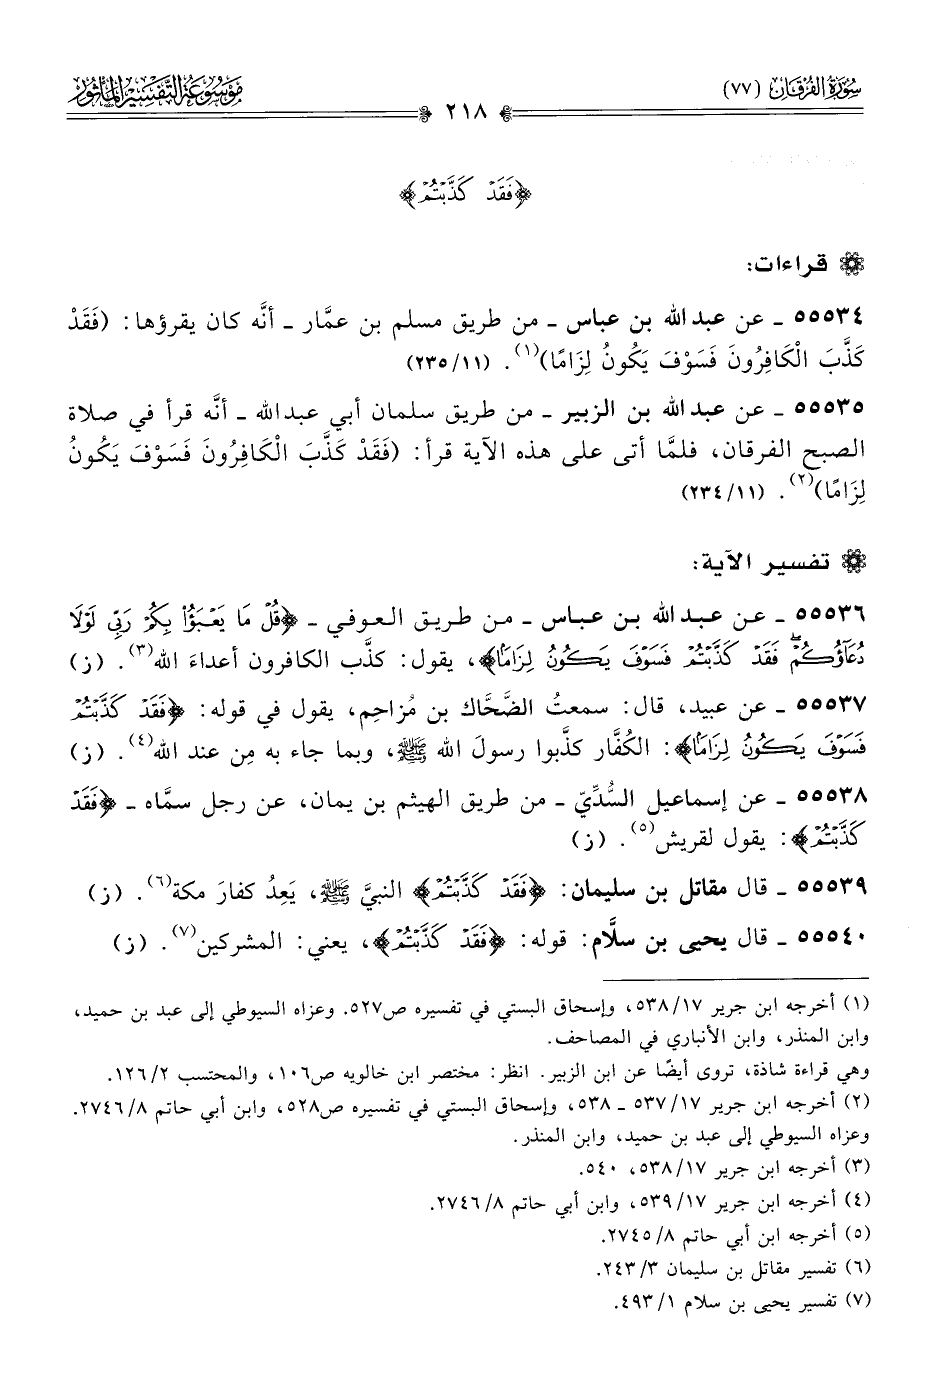 سُورَةُ الفُرْقَان (٧٧)
٢١٨
مَوْسُوعَة التَّفْسِير المَأثُور
﴿فَقَدْ كَذَّبْتُمْ﴾
قراءات:
٥٥٥٣٤ ـ عن عبد الله بن عباس ـ من طريق مسلم بن عمَّار ـ أنَّه كان يقرؤها: (فَقَدْ
كَذَّبَ الْكَافِرُونَ فَسَوْفَ يَكُونُ لِزَامًا)(١). (٢٣٥/١١)
٥٥٥٣٥ ـ عن عبد الله بن الزبير ـ من طريق سلمان أبي عبد الله ـ أنَّه قرأ في صلاة
الصبح الفرقان، فلمَّا أتى على هذه الآية قرأ: (فَقَدْ كَذَّبَ الْكَافِرُونَ فَسَوْفَ يَكُونُ
لِزَامًا)(٢). (٢٣٤/١١)
تفسير الآية:
٥٥٥٣٦ ـ عن عبد الله بن عباس ـ من طريق العوفي ـ ﴿قُلْ مَا يَعْبَؤُا بِكُمْ رَبِّي لَوْلَا
دُعَاؤُكُمْ ۖ فَقَدْ كَذَّبْتُمْ فَسَوْفَ يَكُونُ لِزَامًا﴾، يقول: كذَّب الكافرون أعداءَ الله(٣). (ز)
٥٥٥٣٧ ـ عن عبيد، قال: سمعتُ الضَّحَّاك بن مُزاحِم، يقول في قوله: ﴿فَقَدْ كَذَّبْتُمْ
فَسَوْفَ يَكُونُ لِزَامًا﴾: الكُفَّار كذَّبوا رسولَ الله ﷺ، وبما جاء به مِن عند الله(٤). (ز)
٥٥٥٣٨ ـ عن إسماعيل السُّدِّيّ ـ من طريق الهيثم بن يمان، عن رجل سمَّاه ـ ﴿فَقَدْ
كَذَّبْتُمْ﴾: يقول لقريش(٥). (ز)
٥٥٥٣٩ ـ قال مقاتل بن سليمان: ﴿فَقَدْ كَذَّبْتُمْ﴾ النبيَّ ﷺ، يَعِدُ كفارَ مكة(٦). (ز)
٥٥٥٤٠ ـ قال يحيى بن سلَّام: قوله: ﴿فَقَدْ كَذَّبْتُمْ﴾، يعني: المشركين(٧). (ز)
(١) أخرجه ابن جرير ٥٣٨/١٧، وإسحاق البستي في تفسيره ص٥٢٧. وعزاه السيوطي إلى عبد بن حميد،
وابن المنذر، وابن الأنباري في المصاحف.
وهي قراءة شاذة، تروى أيضًا عن ابن الزبير. انظر: مختصر ابن خالويه ص١٠٦، والمحتسب ١٢٦/٢.
(٢) أخرجه ابن جرير ٥٣٧/١٧ ـ ٥٣٨، وإسحاق البستي في تفسيره ص٥٢٨، وابن أبي حاتم ٢٧٤٦/٨.
وعزاه السيوطي إلى عبد بن حميد، وابن المنذر.
(٣) أخرجه ابن جرير ٥٣٨/١٧، ٥٤٠.
(٤) أخرجه ابن جرير ٥٣٩/١٧، وابن أبي حاتم ٢٧٤٦/٨.
(٥) أخرجه ابن أبي حاتم ٢٧٤٥/٨.
(٦) تفسير مقاتل بن سليمان ٢٤٣/٣.
(٧) تفسير يحيى بن سلام ٤٩٣/١.